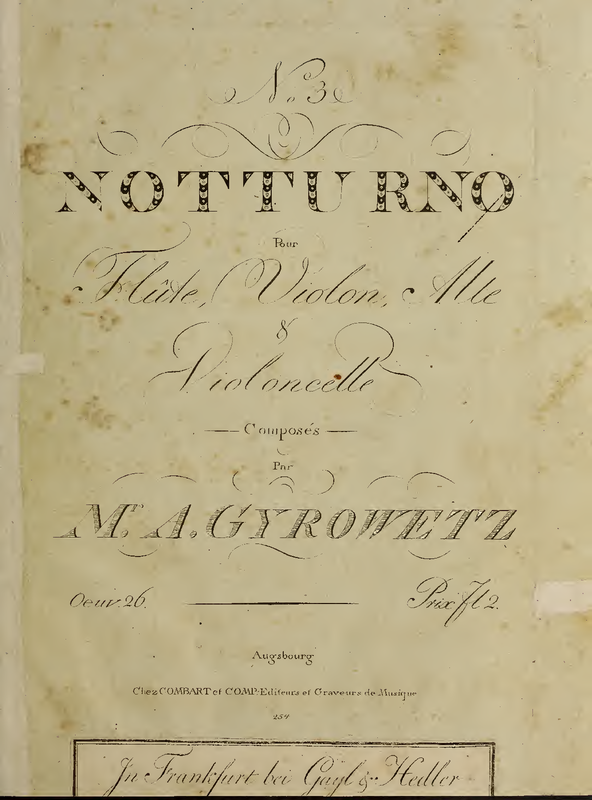 No. 3
NOTTURNO
Pour
Flûte, Violon, Alte
&
Violoncelle
Composés
Par
Mr. A. GYROWETZ
Oeuv: 26. Prix Fl 2.
Augsbourg
Chez COMBART et COMP: Editeurs et Graveurs de Musique
259
In Frankfurt bei Gayl & Hedler